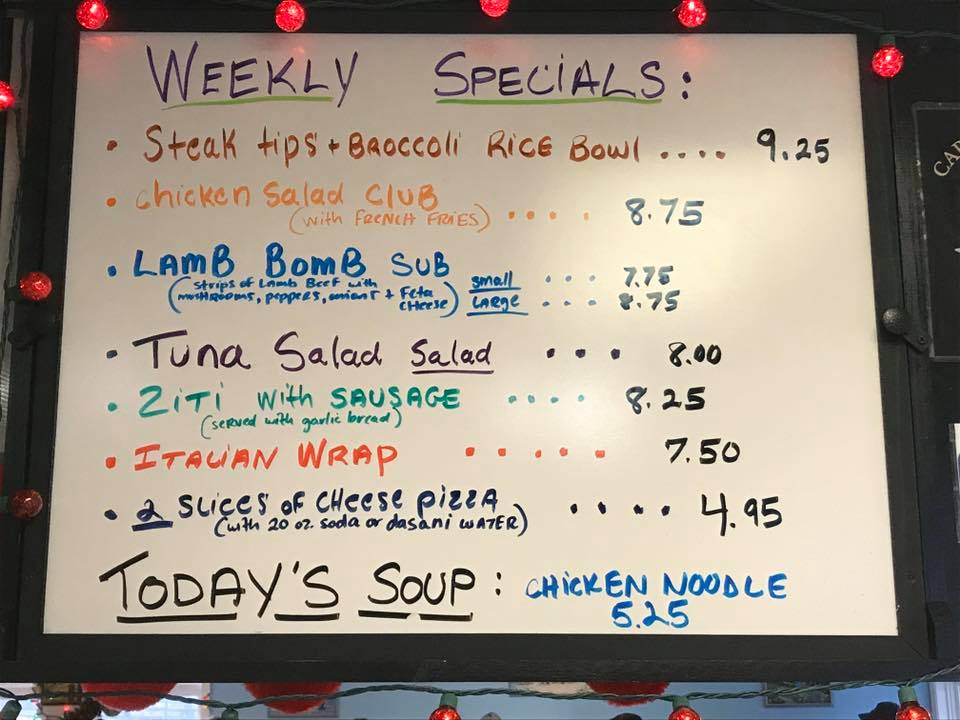 WEEKLY SPECIALS:
• Steak tips + BROCCOLI RICE BOWl .... 9.25
• Chicken Salad CLUB
(with FRENCH FRIES) .... 8.75
• LAMB BOMB SUB
(strips of Lamb Beef with
mushrooms, peppers, oniont + Feta CHeese)
small ... 7.75
LARGE ... 8.75
• Tuna Salad Salad ... 8.00
• ZiTi with SAUSAGE .... 8.25
(served with garlic bread)
• ITALIAN WRAP ..... 7.50
• 2 SLICES OF CHeese pizzA
(with 20 oz. soda or dasani WATER) .... 4.95
TODAY'S SOUP: CHICKEN NOODLE
5.25